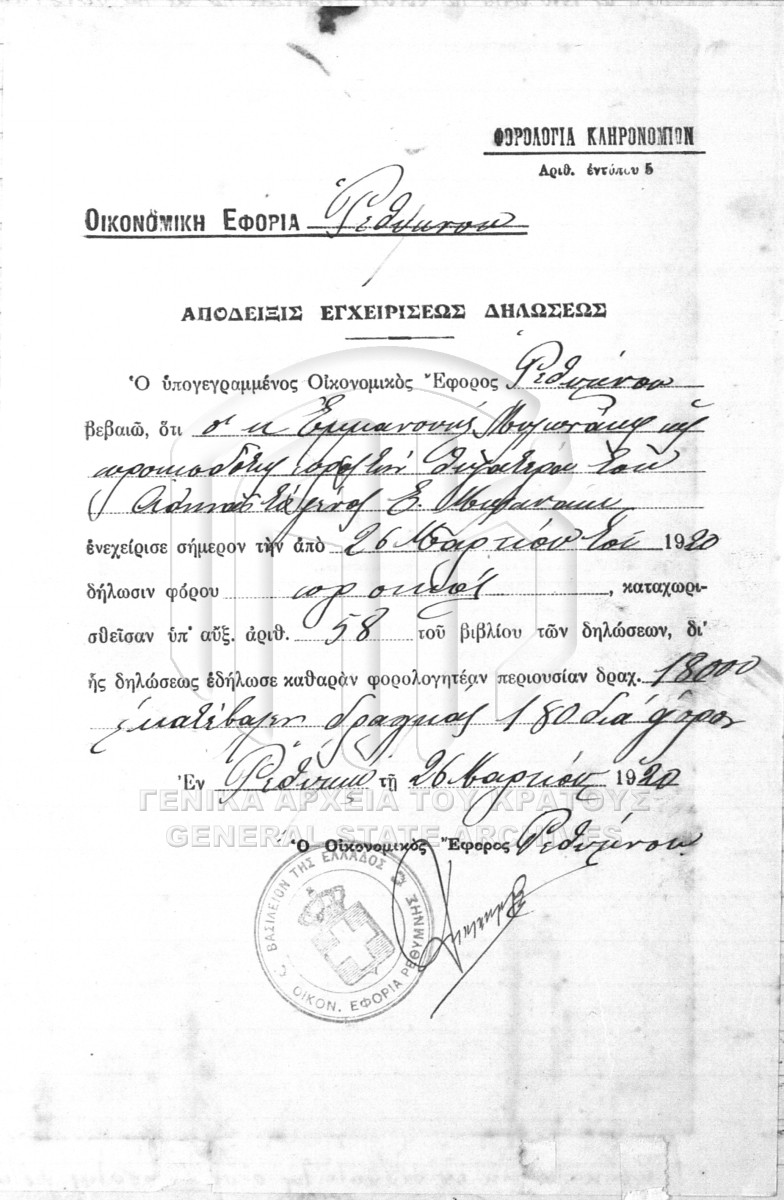 ΦΟΡΟΛΟΓΙΑ ΚΛΗΡΟΝΟΜΙΩΝ
Ἀριθ. ἐντύπου 5
ΟΙΚΟΝΟΜΙΚΗ ΕΦΟΡΙΑ Ρεθύμνου
ΑΠΟΔΕΙΞΙΣ ΕΓΧΕΙΡΙΣΕΩΣ ΔΗΛΩΣΕΩΣ
Ὁ ὑπογεγραμμένος Οἰκονομικὸς Ἔφορος Ρεθύμνου
βεβαιῶ, ὅτι ὁ κ Ἐμμανουήλ
προικοδότης πρὸς τὴν θυγατέρα του
Ε.
ἐνεχείρισε σήμερον τὴν ἀπὸ 26 Μαρτίου τοῦ 1920
δήλωσιν φόρου προικός, καταχωρι-
σθεῖσαν ὑπ' αὔξ. ἀριθ. 58 τοῦ βιβλίου τῶν δηλώσεων, δι'
ἧς δηλώσεως ἐδήλωσε καθαρὰν φορολογητέαν περιουσίαν δραχ. 18000
κατέβαλεν δραχμάς 180 διά φόρον
Ἐν Ρεθύμνῃ τῇ 26 Μαρτίου 1920
ΓΕΝΙΚΑ ΑΡΧΕΙΑ ΤΟΥ ΚΡΑΤΟΥΣ
GENERAL STATE ARCHIVES
Ὁ Οἰκονομικὸς Ἔφορος Ρεθύμνου
ΒΑΣΙΛΕΙΟΝ ΤΗΣ ΕΛΛΑΔΟΣ
ΟΙΚΟΝ. ΕΦΟΡΙΑ ΡΕΘΥΜΝΗΣ